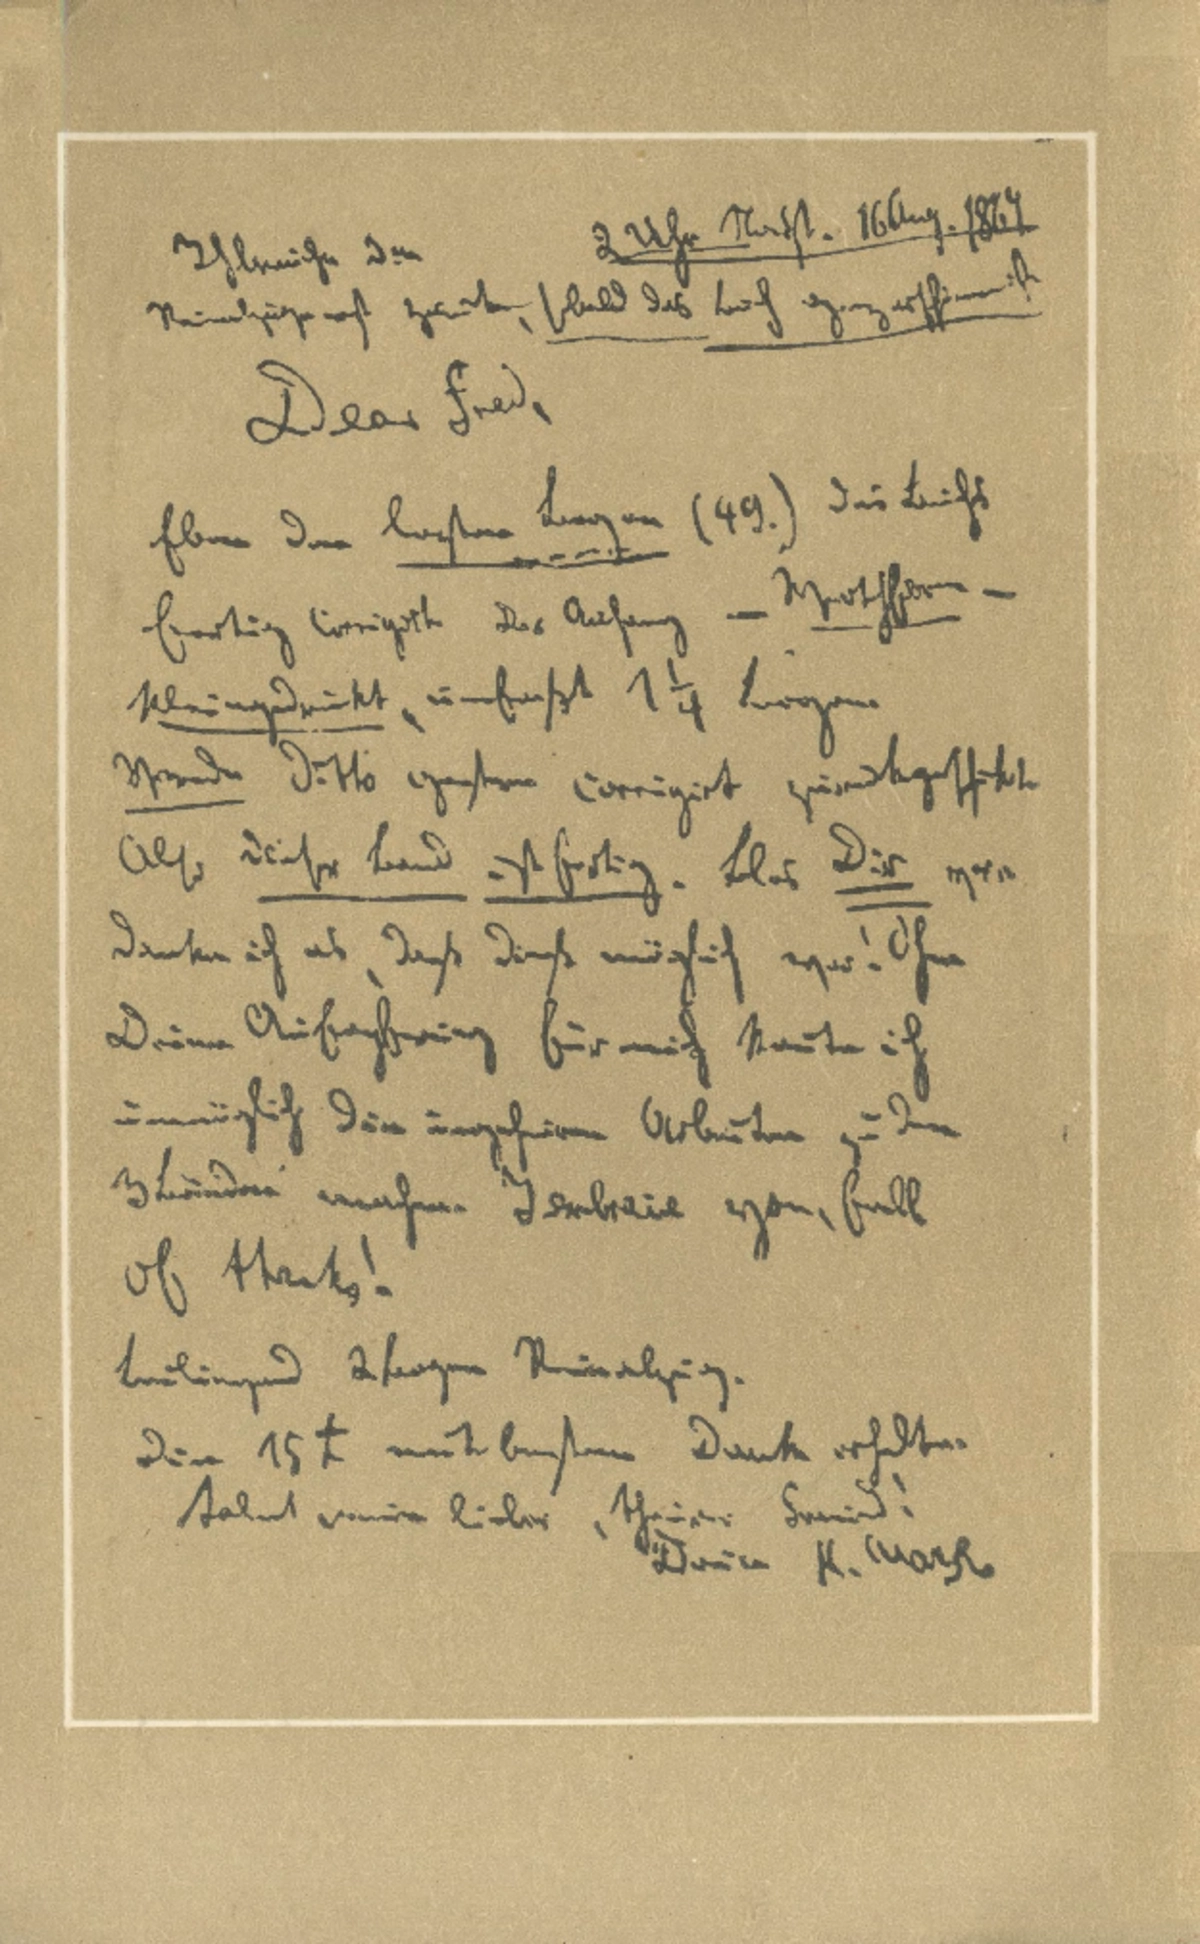 2 Uhr Nacht. 16 Aug. 1867
Ich brauche den
Reinabzug erst zurück, sobald das Buch ganz erschienen ist
Dear Fred,
Eben den letzten Bogen (49.) des Buchs
fertig corrigirt. Der Anhang – Werthform –
kleingedruckt, umfaßt 1 1/4 Bogen.
Vorrede ditto gestern corrigirt zurückgeschickt.
Also dieser Band ist fertig. Blos Dir ver-
danke ich es, daß dieß möglich war! Ohne
Deine Aufopferung für mich konnte ich
unmöglich die ungeheuren Arbeiten zu den
3 Bänden machen. I embrace you, full
of thanks!
Beiliegend 2 Bogen Reinabzug.
Die 15 £ mit bestem Dank erhalten.
Salut mein lieber, theurer Freund!
Dein K. Marx